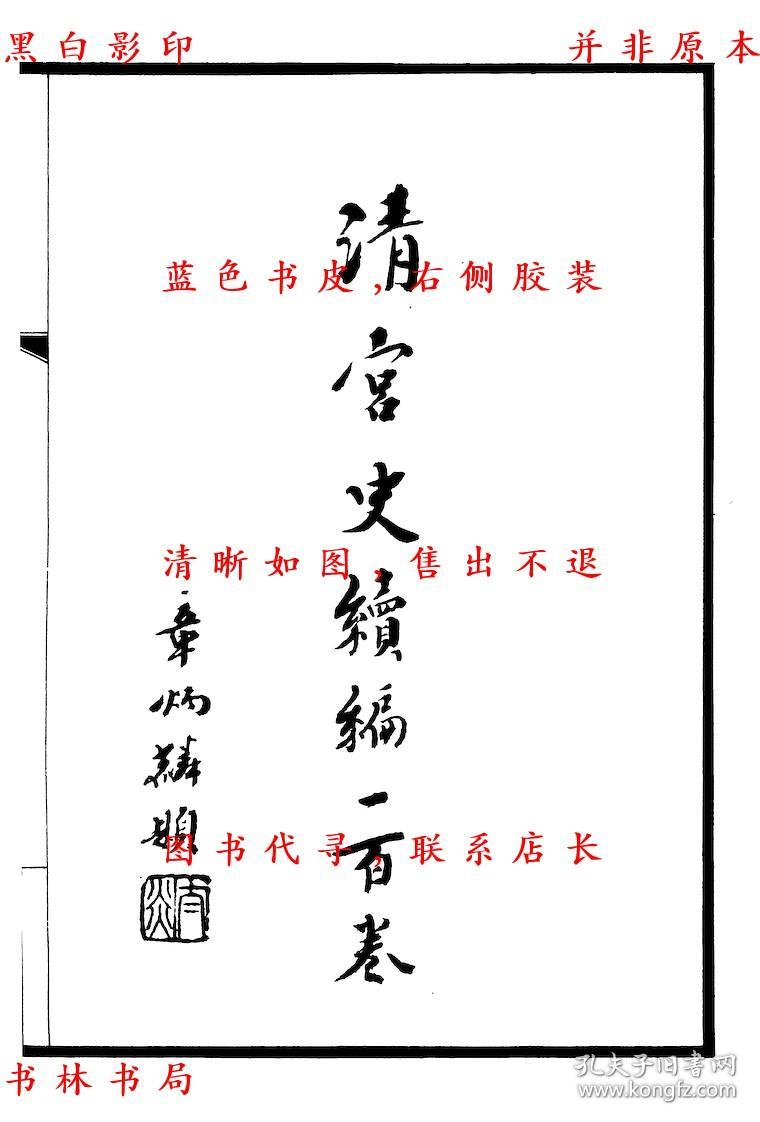 黑白影印
并非原本
清宮史續編一百卷
章炳麟題
太炎
蓝色书皮,右侧胶装
清晰如图,售出不退
图书代寻,联系店长
书林书局
孔夫子旧书网
www.kongfz.com